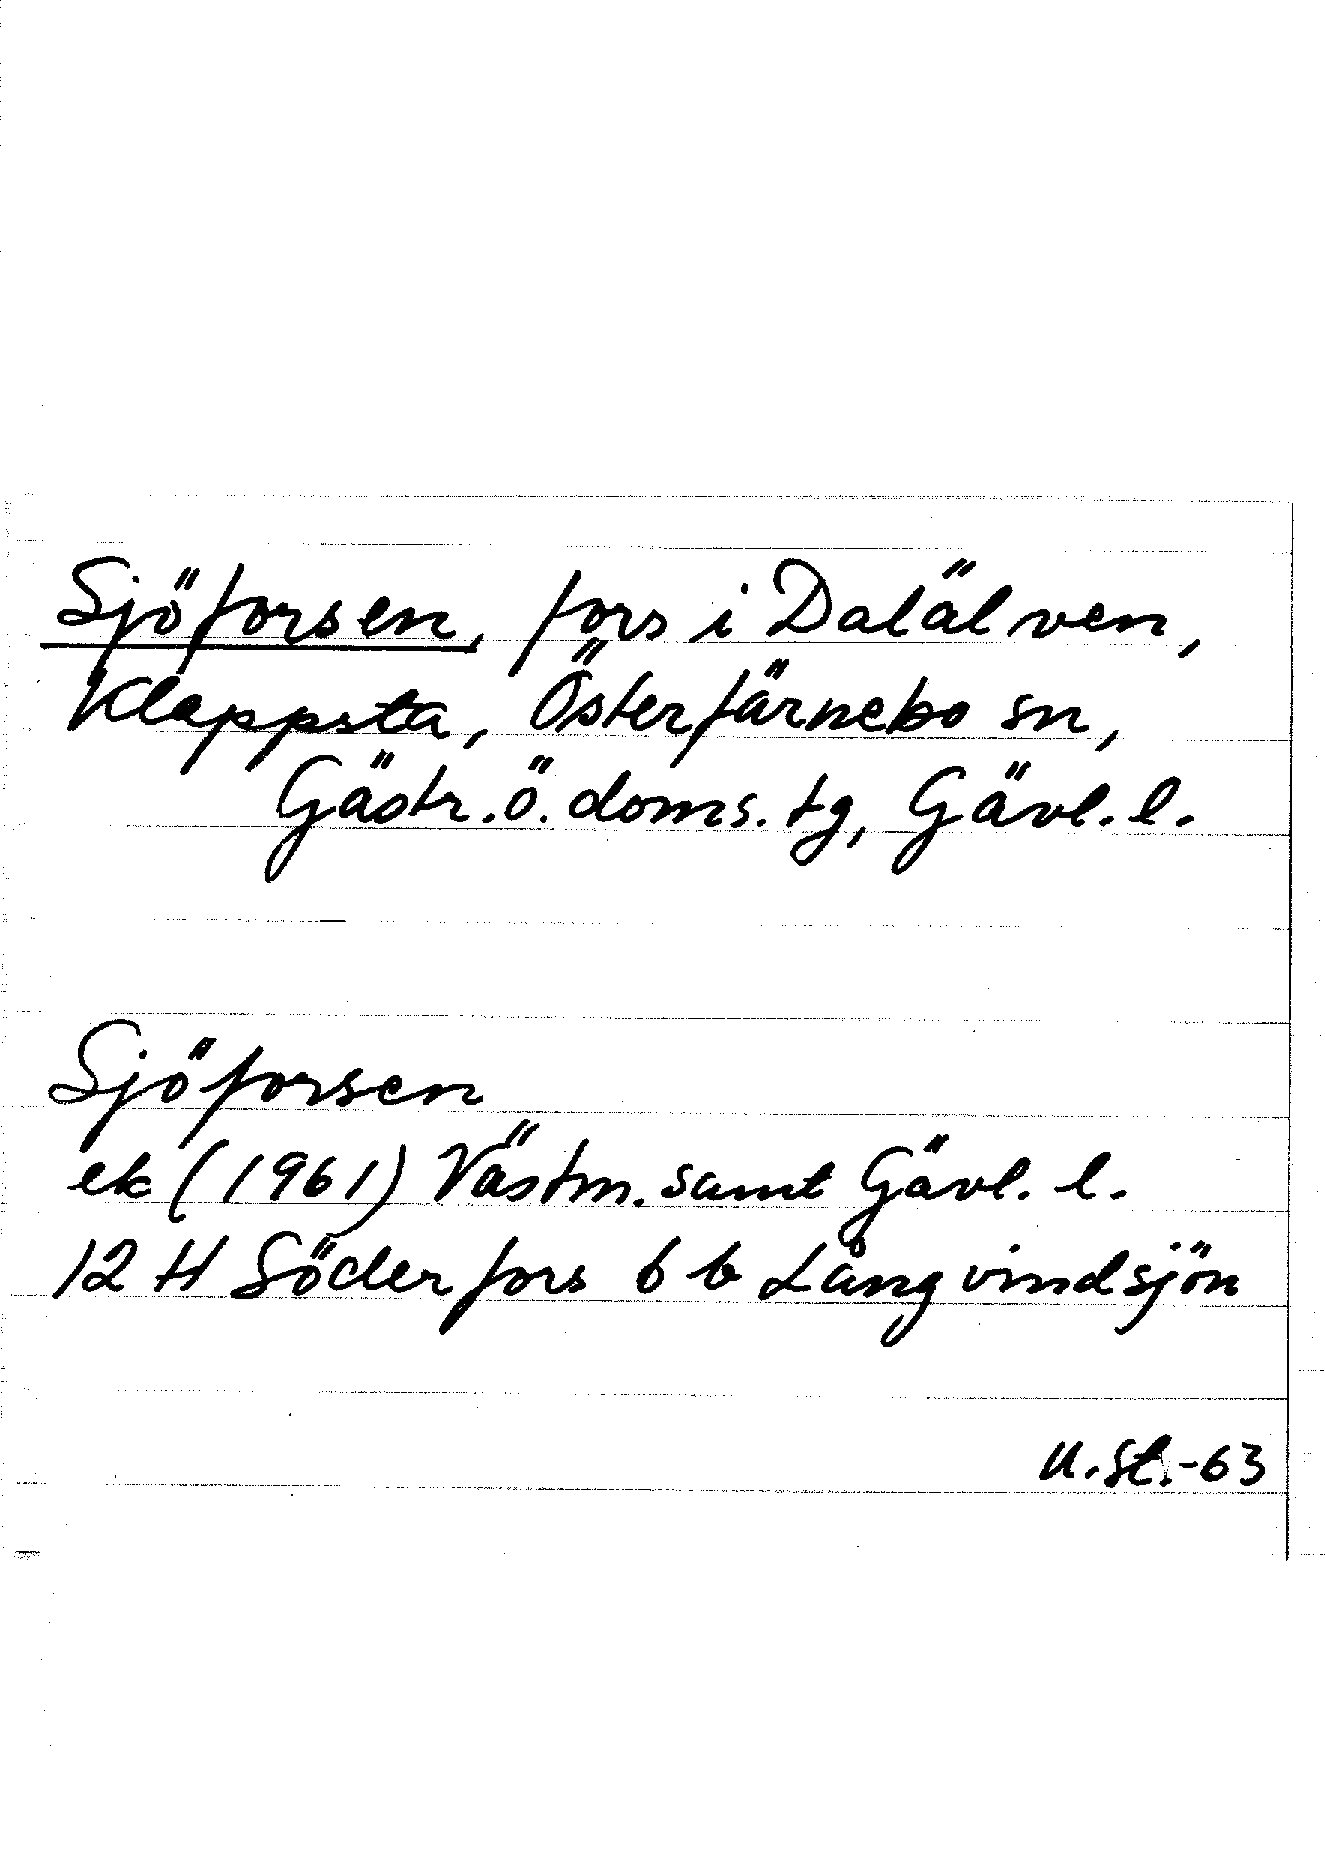 Sjöforsen, fors i Dalälven,
Klappsta, Österfärnebo sn,
Gästr. ö. doms. tg, Gävl. l.
Sjöforsen
ek (1961) Västm. samt Gävl. l.
12 H Söderfors 6 b Långvindsjön
U. St. -63